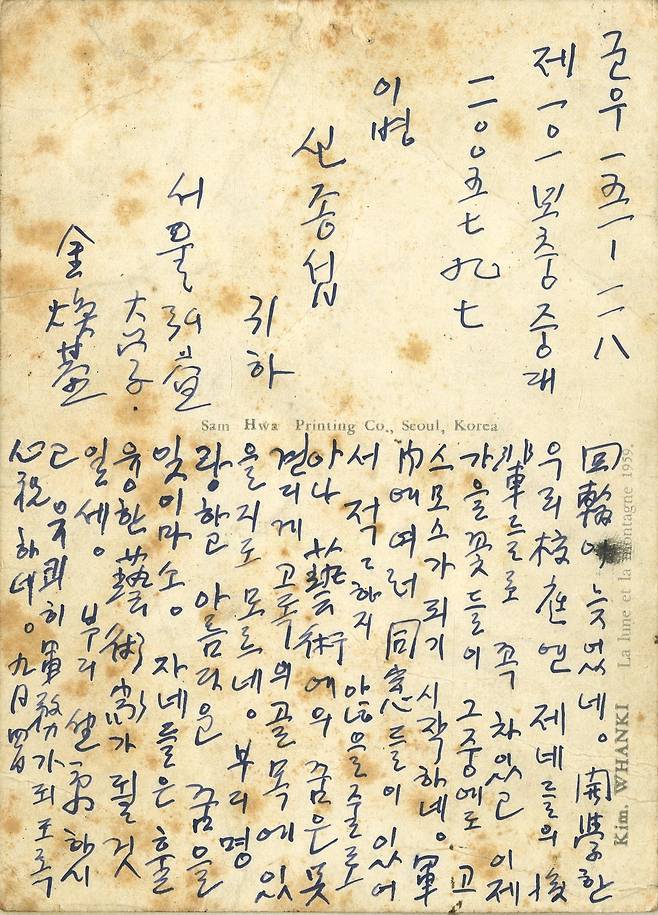 군우 一五一 — 一八
제 一〇一 보충중대
二〇〇五七九七
이병
신종섭
귀하
서울 弘益
大学.
金煥基
Sam Hwa Printing Co., Seoul, Korea
Kim. WHANKI La lune et la montagne 1959.
回輪이 늦었네。 開学한
우리 校庭엔 제네들의 後
輩드르로 꼭 차있고 이제
가을꽃들이 그중에도 고
스모스가 피기 시작하네。 軍
內에 여러 同窓들이 있어
서 적々하지 않을줄로
아나 藝術에의 꿈은 뜻
고독의 골목에 있
을지도 모르네。 부디 명
랑하고 아름다운 꿈을
잊이마소。 자네들은 훌
융한 藝術家가 될것
일세。 부디 健康하시
고 유쾌히 軍務가 되도록
心祝하네。 九月四日